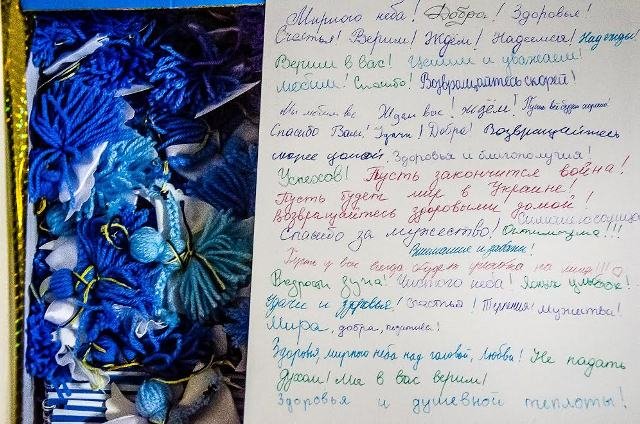 Мирного неба! Добра! Здоровья!
Счастья! Верим! Ждём! Надеемся! Надежды!
Верим в вас! Ценим и уважаем!
Любим! Спасибо! Возвращайтесь скорей!
Мы любим вас Ждем вас! Ждём! Пусть всё будет хорошо!
Спасибо Вам! Удачи! Добра! Возвращайтесь
скорее домой. Здоровья и благополучия!
Успехов! Пусть закончится война!
Пусть будет мир в Украине!
Возвращайтесь здоровыми домой!
Спасибо за мужество! Оптимизма!!!
Внимания и заботы!
Пусть у вас всегда будет улыбка на лице!!!
Бодрости духа! Чистого неба! Ясных улыбок!
Удачи и здоровья! Счастья! Терпения! Мужества!
Мира, добра, позитива!
Здоровья, мирного неба над головой, Любви! Не падать
духом! Мы в вас верим!
Здоровья и душевной теплоты!